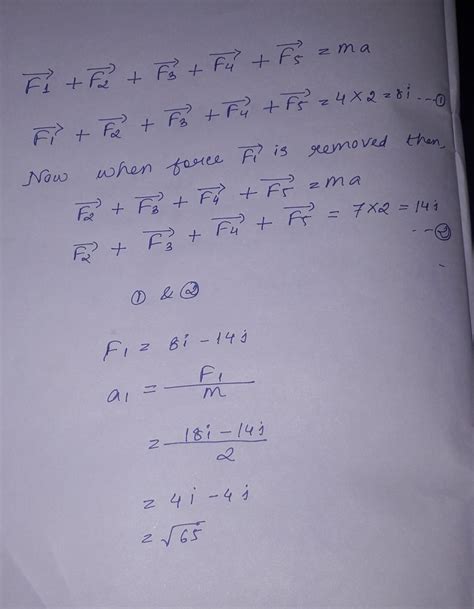 F₁ + F₂ + F₃ + F₄ + F₅ = ma
F₁ + F₂ + F₃ + F₄ + F₅ = 4×2 = 8i ---①
Now when force F₁ is removed then,
F₂ + F₃ + F₄ + F₅ = ma
F₂ + F₃ + F₄ + F₅ = 7×2 = 14j
--②
① & ②
F₁ = 8i - 14j
a₁ = F₁/m
= 18i - 14j/2
= 4i - 4j
= √65